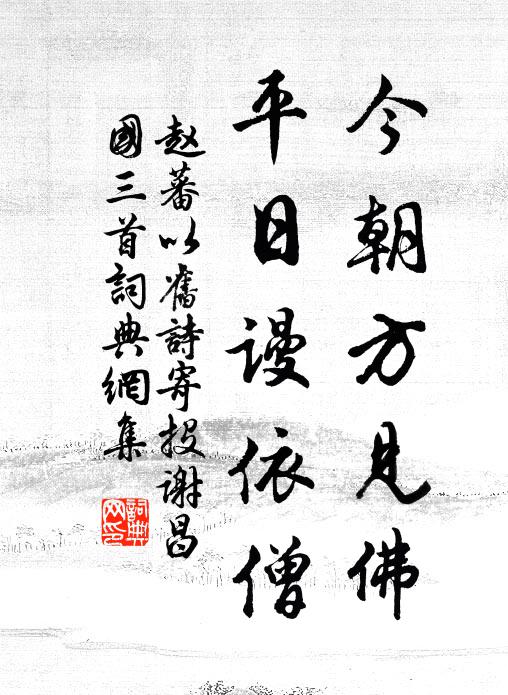 今朝方見佛
平日謾依僧
赵蕃以舊詩寄投謝昌
國三首詞典網集
詞典
网印